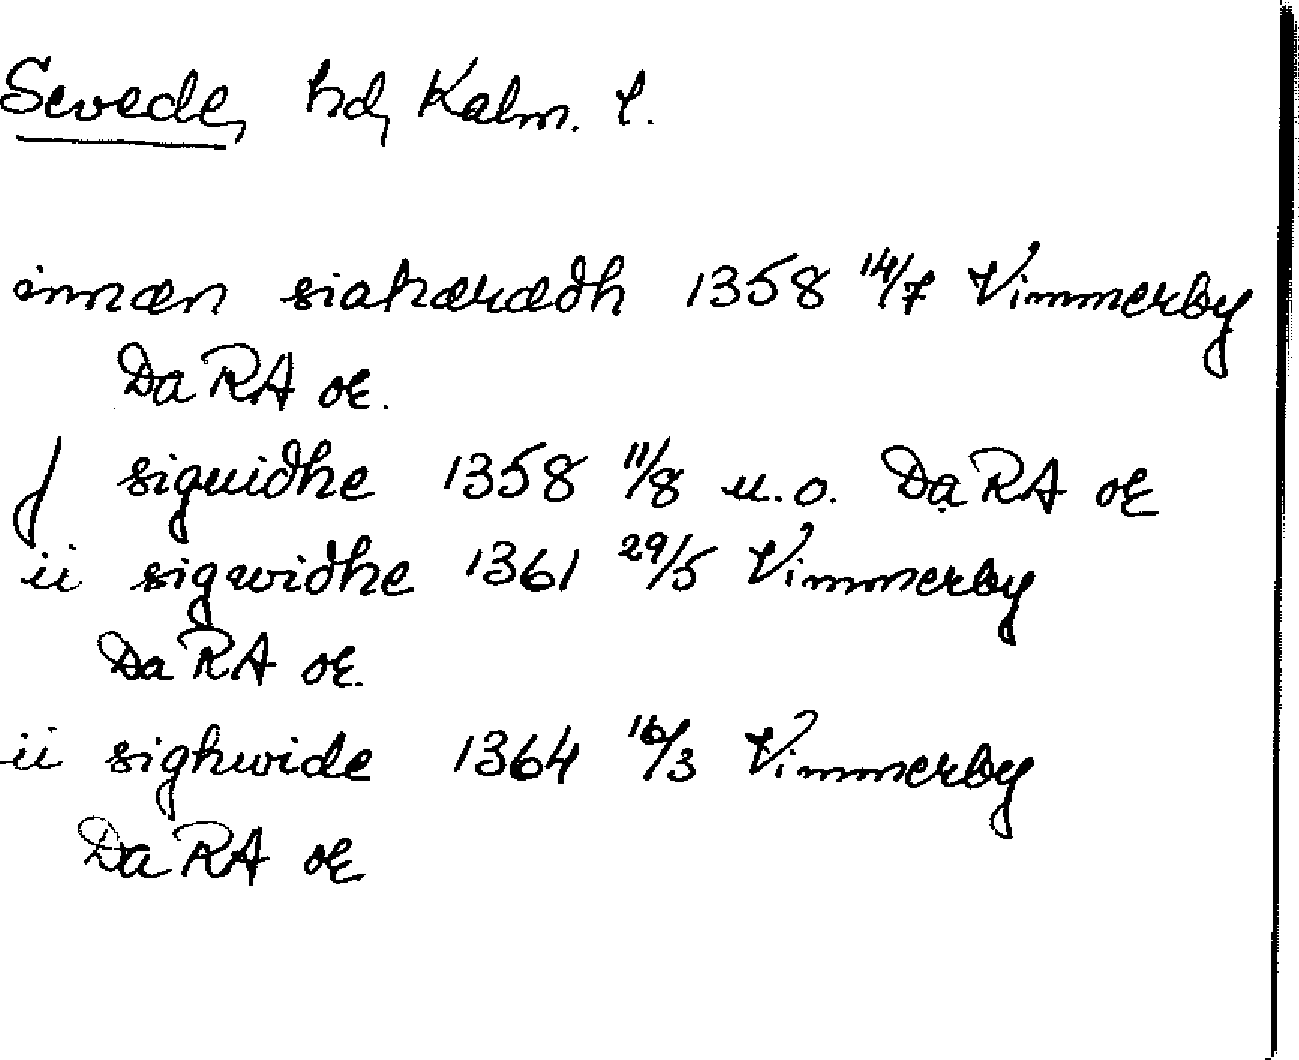 Sevede, hd, Kalm. l.
innæn siahæræðh 1358 14/7 Vimmerby
DaRA oæ.
j siguiðhe 1358 11/8 u.o. DaRA oæ
ii sigwiðhe 1361 29/5 Vimmerby
DaRA oæ.
ii sighwide 1364 16/3 Vimmerby
DaRA oæ